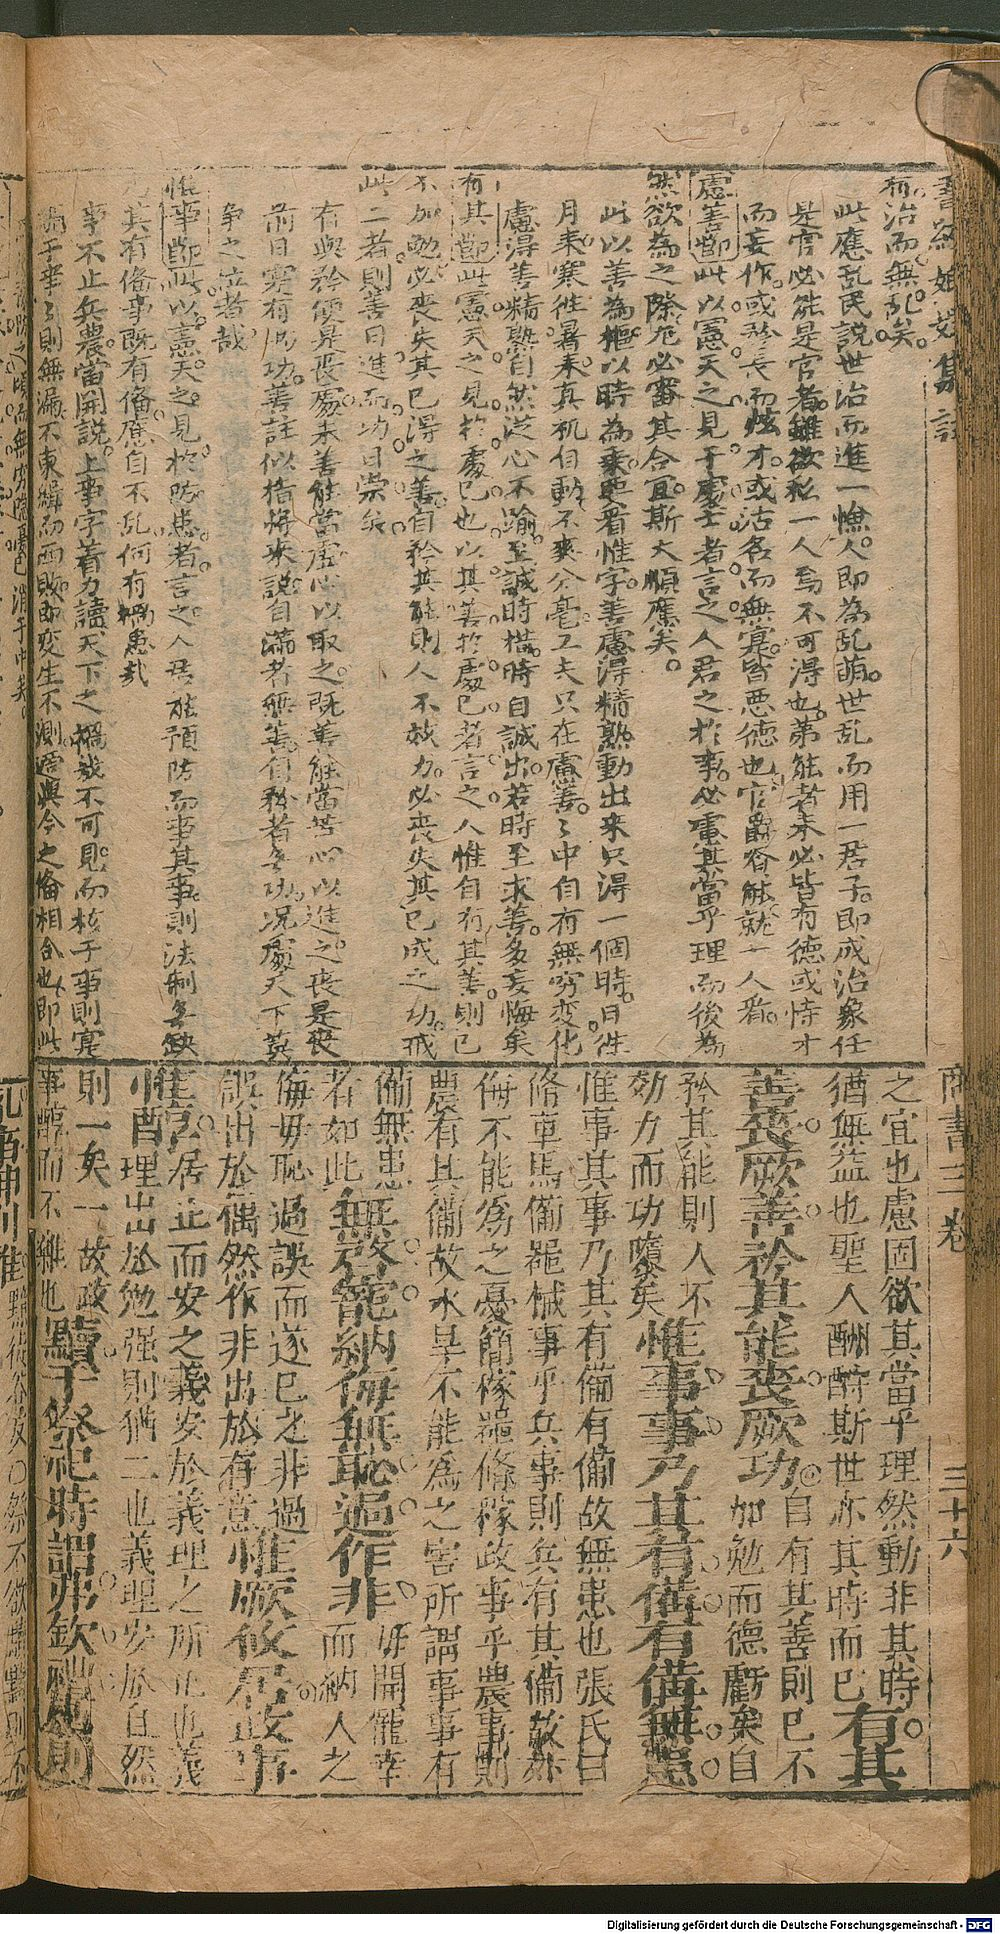 和治而無乱矣
此應乱民說世治而進一憸人即為乱萌世乱而用一君子即成治象任
是官必能是官者雖欲私一人焉不可得也第能者未必皆有德或恃才
而妄作或矜長而炫才或沽名而無寔皆悪德也官爵咨能就一人看
慮善節此以憲天之見于慮士者言之人君之於事必慮其當乎理而後為
然欲為之際尤必審其合宜斯大順應矣
此以善為樞以時為乘更看惟字善慮得精熟動出来只得一個時日往
月来寒往暑来真机自動不爽分毫工夫只在慮善之中自有無穷変化
慮得善精熟自然從心不踰至誠時措時自誠出若時至求善多妄悔矣
有其節此憲天之見於處已也以其善於處已者言之人惟自有其善則已
不加勉必丧失其已得之善自矜其能則人不效力必丧失其已成之功戒
此二者則善日進而功日崇矣
有與矜便是丧處未善能當虚心以取之既善能當苦心以進之丧是丧
前日寔有凡功善註似指将来說自滿者無善自矜者無功况處天下莫
争之位者哉
惟事節此以憲天之見於防患者言之人君能預防而事其事則法制無缺
其有俻事既有俻應自不乱何有禍患哉
事不止兵農當開說上事字着力讀天下之禍幾不可見而核于事則寔
于事事則無漏不東緝而西敗即変生不測適與今之俻相合也即此
商書三卷 三十六
之宜也慮固欲其當乎理然動非其時
猶無益也聖人酬酢斯世亦其時而已有其
善喪厥善矜其能喪厥功自有其善則已不加勉而德虧矣自
矜其能則人不
効力而功隳矣惟事事乃其有備有備無患
惟事其事乃其有備有備故無患也張氏曰
脩車馬備噐械事乎兵事則兵有其備故外
侮不能為之憂簡稼噐脩稼政事乎農事則
農有其備故水旱不能為之害所謂事事有
備無患
者如此無啓寵納侮無恥過作非毋開寵幸而納人之
侮毋恥過誤而遂已之非過
誤出於偶然作非出於有意惟厥攸居政事
惟醇居止而安之義安於義理之所止也義
理出於勉强則猶二也義理安於自然
則一矣一故政
事醇而不雜也黷于祭祀時謂弗欽禮煩則